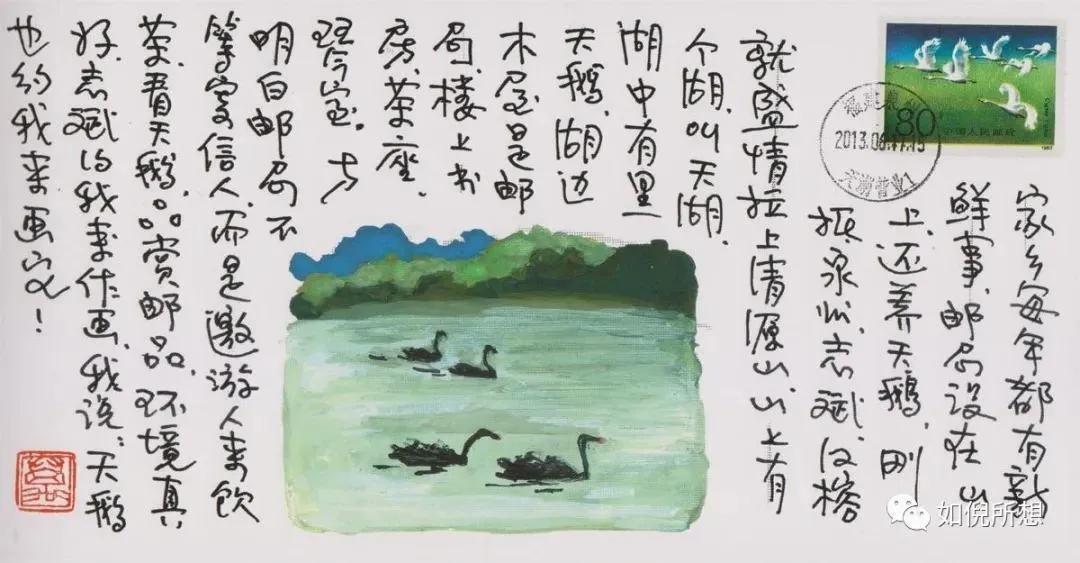 家乡每年都有新
鲜事,邮局设在山
上,还养天鹅,刚
抵泉州,志斌、榕
就盛情拉上清源山,山上有
个湖,叫天湖,
湖中有黑
天鹅,湖边
木屋是邮
局,楼上书
房、茶座、
琴室。方
明白邮局不
等寄信人,而是邀游人来饮
茶,看天鹅,品赏邮品,环境真
好,志斌约我来作画,我说:天鹅
也约我来画它!
80
中国人民邮政
如倪所想